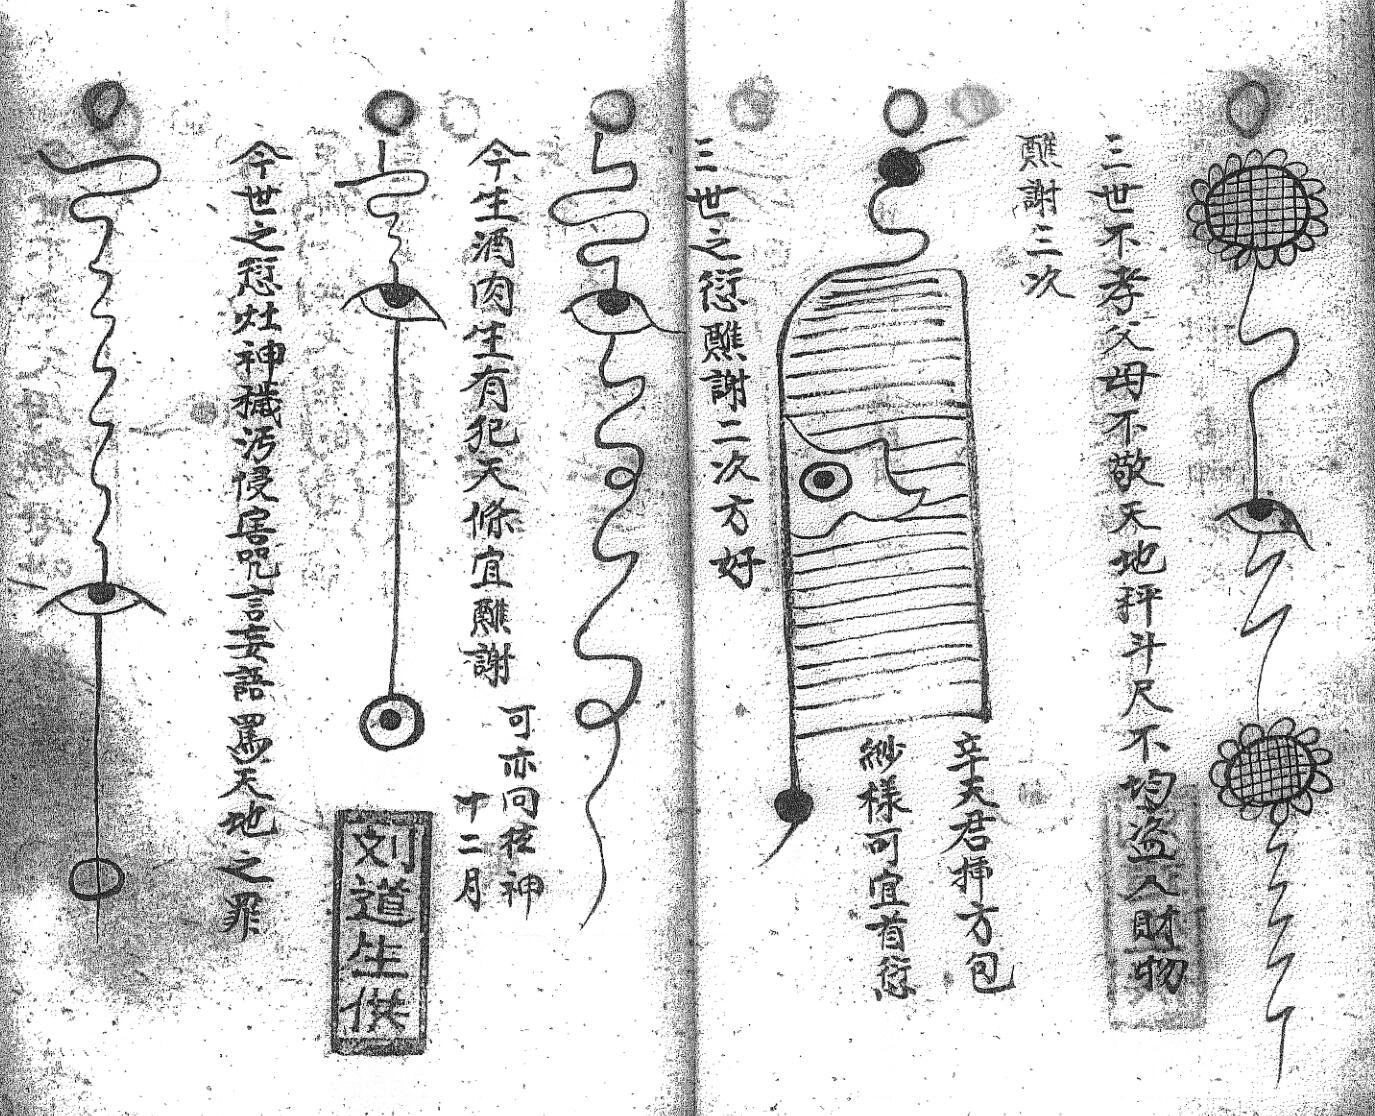 三世不孝父母不敬天地秤斗尺不均盗人財物
醮謝三次
辛天君掃方包
紗樣可宜首愆
三世之愆醮謝二次方好
今生酒肉生有犯天條宜醮謝
可亦问神
十二月
刘道生供
今世之愆灶神穢污侵害咒言妄語罵天地之罪